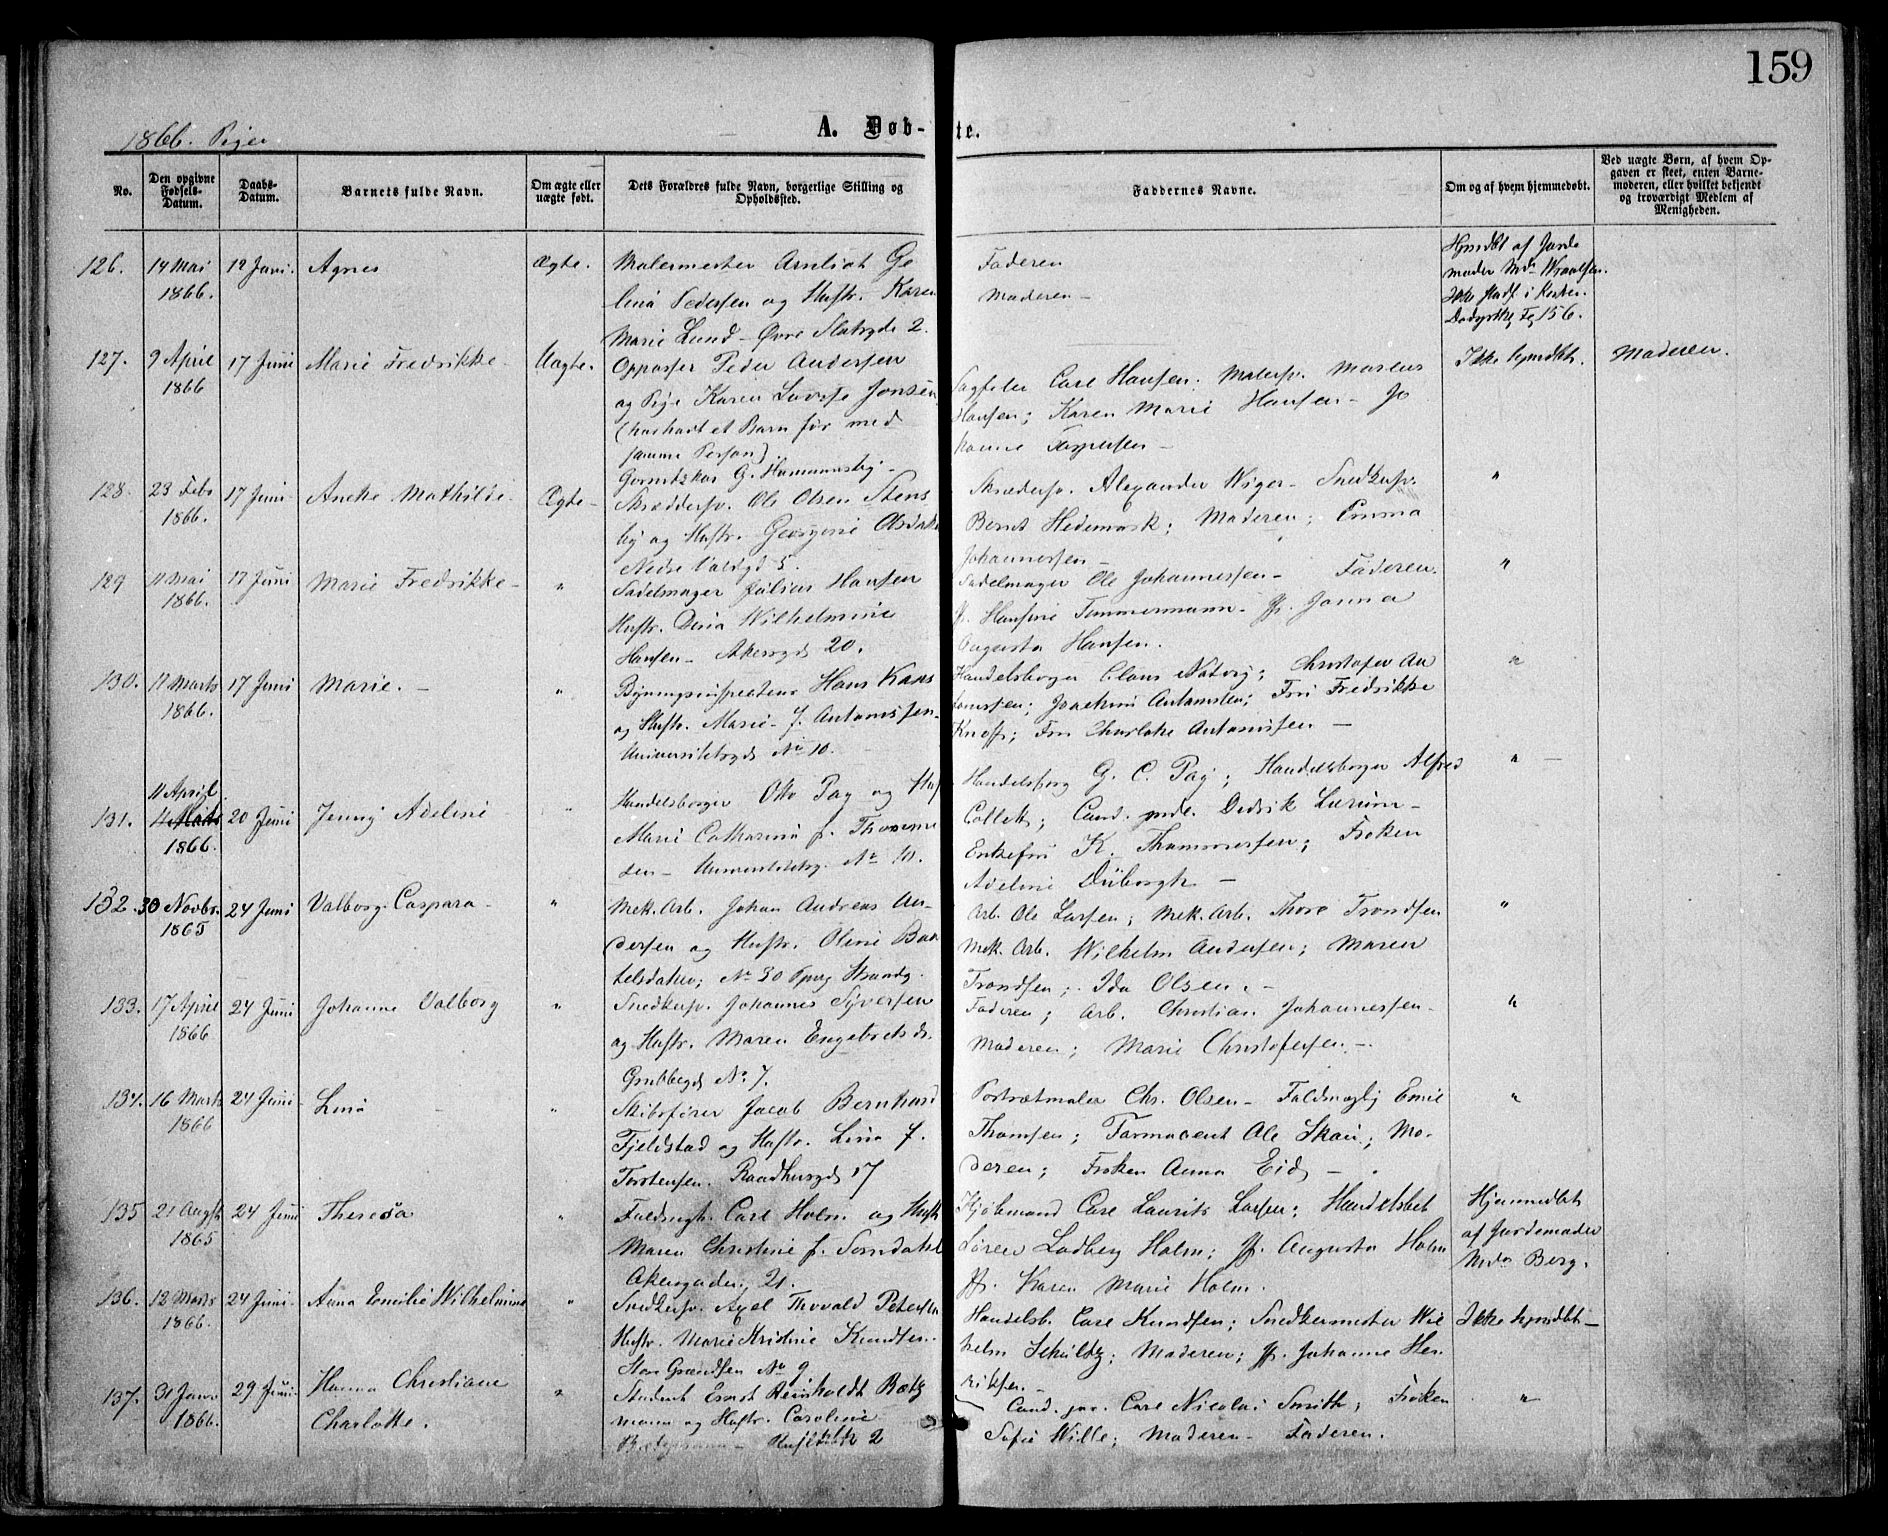 159
1866. Piger
A. Døb-te.
No.
Den opgivne Fødsels-Datum.
Daabs-Datum.
Barnets fulde Navn.
Om ægte eller uægte født.
Dets Forældres fulde Navn, borgerlige Stilling og Opholdssted.
Faddernes Navne.
Om og af hvem hjemmedøbt.
Ved uægte Børn, af hvem Opgaven er skeet, enten Barnemoderen, eller hvilket bekjendt og troværdigt Medlem af Menigheden.
126. 14 Mai 1866. 12 Juni. Agnes Ægte.
Malermester
Pedersen og Hustr. Karen
Marie Lund - Øvre Slotsgde 2.
Faderen
Moderen -
Hjmdbt af Jorde
moder
127. 9 April 1866 17 Juni Marie Fredrikke - Uægte.
Opposser Peder Andersen
og Pige Karen Lovise Jonsen
(har havt et Barn før med
samme Person).
Carl Hansen. Malersv. Marius
Hansen; Karen Marie Hansen - Jo
hanne
Ikke hjmdbt. Moderen.
128. 23 Febr 1866. 17 Juni Mathilde. Ægte -
Skræddersv. Ole Olsen Stens
by og Hustr. Georgine Olsdatter
5.
Skrædersv. Alexander Wiger - Snedkersv.
Bernt Hedemark; Moderen; Emma
Johannessen -
"
129 11 Mai 1866. 17 Juni Marie Fredrikke - "
Sadelmager Julius Hansen
Hustr. Dina Wilhelmine
Hansen - Akersgd 20.
Sadelmager Ole Johannessen - Faderen.
Jf. Hansine Tømmermann - Jf. Janna
Augusta Hansen.
"
130. 17 Marts 1866. 17 Juni Marie. - "
Bygningsinspecteur Hans
og Hustr. Marie f. Antonissen -
Universitetsgd No 10.
Handelsborger Claus ; Christofer An
tonissen; Joachim Antonisen; Frk Fredrikke
Knoff; Frk Charlotte Antonissen -
"
131. 11 April 1866. 20 Juni Jenny Adeline "
Handelsborger Otto Pay og Hus
Marie Catharina f. Thomme
sen - Universitetsg. No 10.
Handelsborg G. C. Pay; Handelsborger Alfred
Collett; Cand. Didrik
Enkefru K. Thommesen; Frøken
Adeline Düborgh -
" -
132. 30 Novbr. 1865 24 Juni Valborg Caspara - "
Mek. Arb. Johan Andreas An-
dersen og Hustr. Oline
No 30
Arb. Ole Larsen; Mek. Arb. Thore Trondsen
Mek. Arb. Wilhelm Andersen; Maren
Trondsen; Ida Olsen. -
"
133. 17 April 1866 24 Juni Johanne Valborg "
Snedkersv. Johannes Syversen
og Hustr. Maren Engebretsd.
Grubbegd No 7.
Faderen; Arb. Christian Johannessen -
Moderen; Marie Christofersen. -
"
134. 16 Marts 1866 24 Juni - Lina - "
Skibsfører Jacob Bernhard
Fjeldstad og Hustr. Lina f.
Torstensen. Raadhusgd 17
Portrætmaler Chr. Olsen - Fuldmægtig Emil
Thomsen; Farmaceut Ole ; Mo-
deren; Frøken Anna Eid -
"
135 21 Augst 1865 24 Juni Theresa "
Fuldmgt. Carl Holm og Hustr
Maren Christine f. Sorndahl
Akersgaden; 21.
Kjøbmand Carl Laurits Larsen; Handelsbet
Søren Ladberg Holm; Jf. Augusta Holm
Jf. Karen Marie Holm.
Hjemmedbt
af Jordemoder
Mdm Berg.
136. 12 Marts 1866. 24 Juni - Anna Emilie Wilhelmine "
Snedkersv. Axel Thovald Petersen
Hustr. Marie Kristine Knudsen.
Store Grændsen No 9
Handelsb. Carl Knudsen; Snedkermester Wil
helm Schültz; Moderen; Jf. Johanne Hen
riksen -
Ikke hjmdbt -
137. 31 Janr 1866. 29 Juni - Hanna Christiane
Charlotte. "
Student Ernst Reinholdt Bætz
mann og Hustr. Caroline
Bætzmann - 2
Cand. Carl Nicolai Smith; Frøken
Sofie Wille; Moderen - Faderen.
"